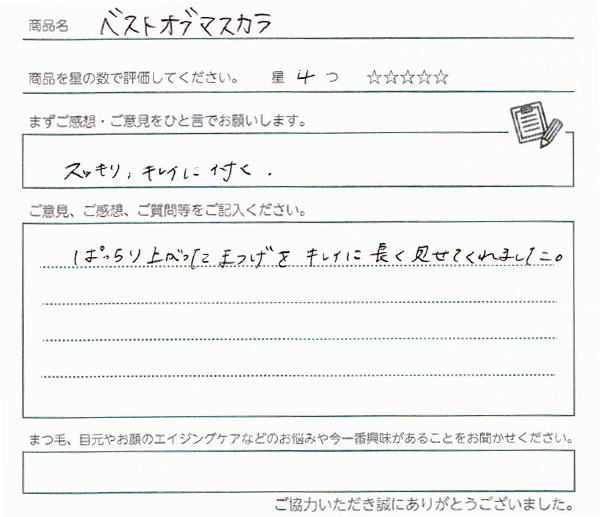 商品名 ベストオブマスカラ
商品を星の数で評価してください。 星 4 つ ☆☆☆☆☆
まずご感想・ご意見をひと言でお願いします。
スッキリ、キレイに付く.
ご意見、ご感想、ご質問等をご記入ください。
ぱっちり上がったまつげをキレイに長く見せてくれました。
まつ毛、目元やお顔のエイジングケアなどのお悩みや今一番興味があることをお聞かせください。
ご協力いただき誠にありがとうございました。